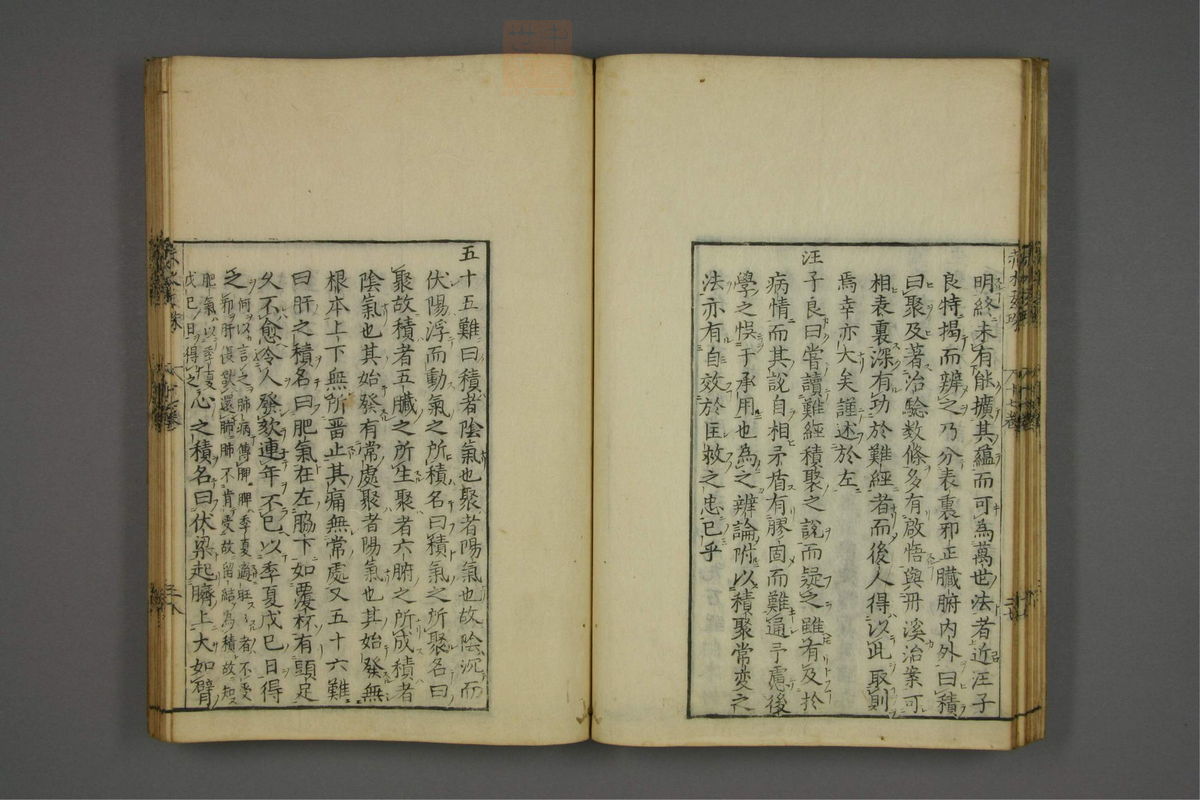 明終未有能擴其蘊而可為萬世法者近汪子
良特揭而辨之乃分表裏邪正臟腑內外曰積
曰聚及著治驗数條多有啟悟與丹溪治案可
相表裏深有功於難經者而後人得以此取則
焉幸亦大矣謹述於左
汪子良曰嘗讀難經積聚之說而疑之雖有及於
病情而其說自相矛盾有膠固而難通予慮後
學之悞于承用也為之辨論附以積聚常変之
法亦有自效於匡救之忠已乎
五十五難曰積者陰氣也聚者陽氣也故陰沉而
伏陽浮而動氣之所積名曰積氣之所聚名曰
聚故積者五臟之所生聚者六腑之所成積者
陰氣也其始發有常處聚者陽氣也其始發無
根本上下無所畱止其痛無常處又五十六難
曰肝之積名曰肥氣在左脇下如覆杯有頭足
久不愈令人發欬連年不已以季夏戊已日得
之何以言之肺病傳肝脾季夏適旺旺者不受
邪肝復欲還肺肺不肯受故留結為積故知
肥氣以季夏
戊已日得之
心之積名曰伏梁起臍上大如臂